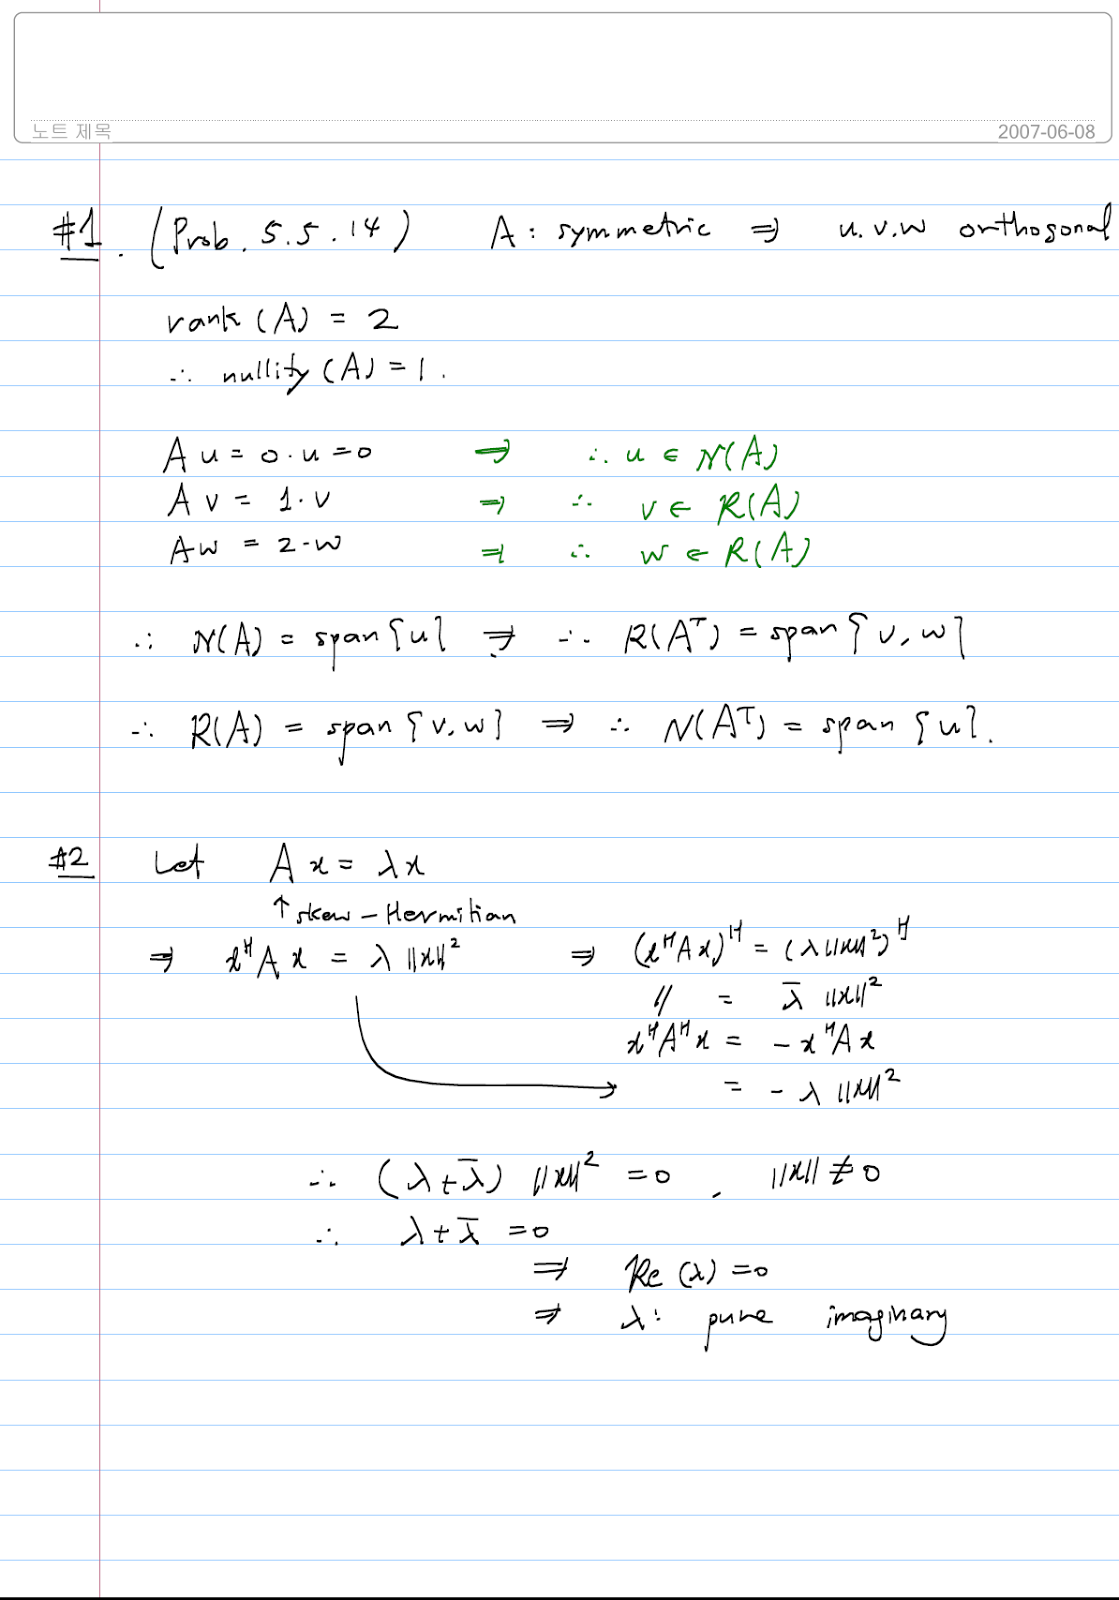 노트 제목
2007-06-08
#1. (Prob. 5.5.14) A : symmetric ⇒ u.v.w orthogonal
rank(A) = 2
∴ nullity(A) = 1.
Au = 0·u = 0 ⇒ ∴ u ∈ N(A)
Av = 1·v ⇒ ∴ v ∈ R(A)
Aw = 2·w ⇒ ∴ w ∈ R(A)
∴ N(A) = span{u} ⇒ ∴ R(Aᵀ) = span{v, w}
∴ R(A) = span{v, w} ⇒ ∴ N(Aᵀ) = span{u}.
#2 Let Ax = λx
↑ skew-Hermitian
⇒ xᴴAx = λ‖x‖² ⇒ (xᴴAx)ᴴ = (λ‖x‖²)ᴴ
〃 = λ̄ ‖x‖²
xᴴAᴴx = -xᴴAx
= -λ‖x‖²
∴ (λ+λ̄)‖x‖² = 0, ‖x‖ ≠ 0
∴ λ+λ̄ = 0
⇒ Re(λ) = 0
⇒ λ: pure imaginary